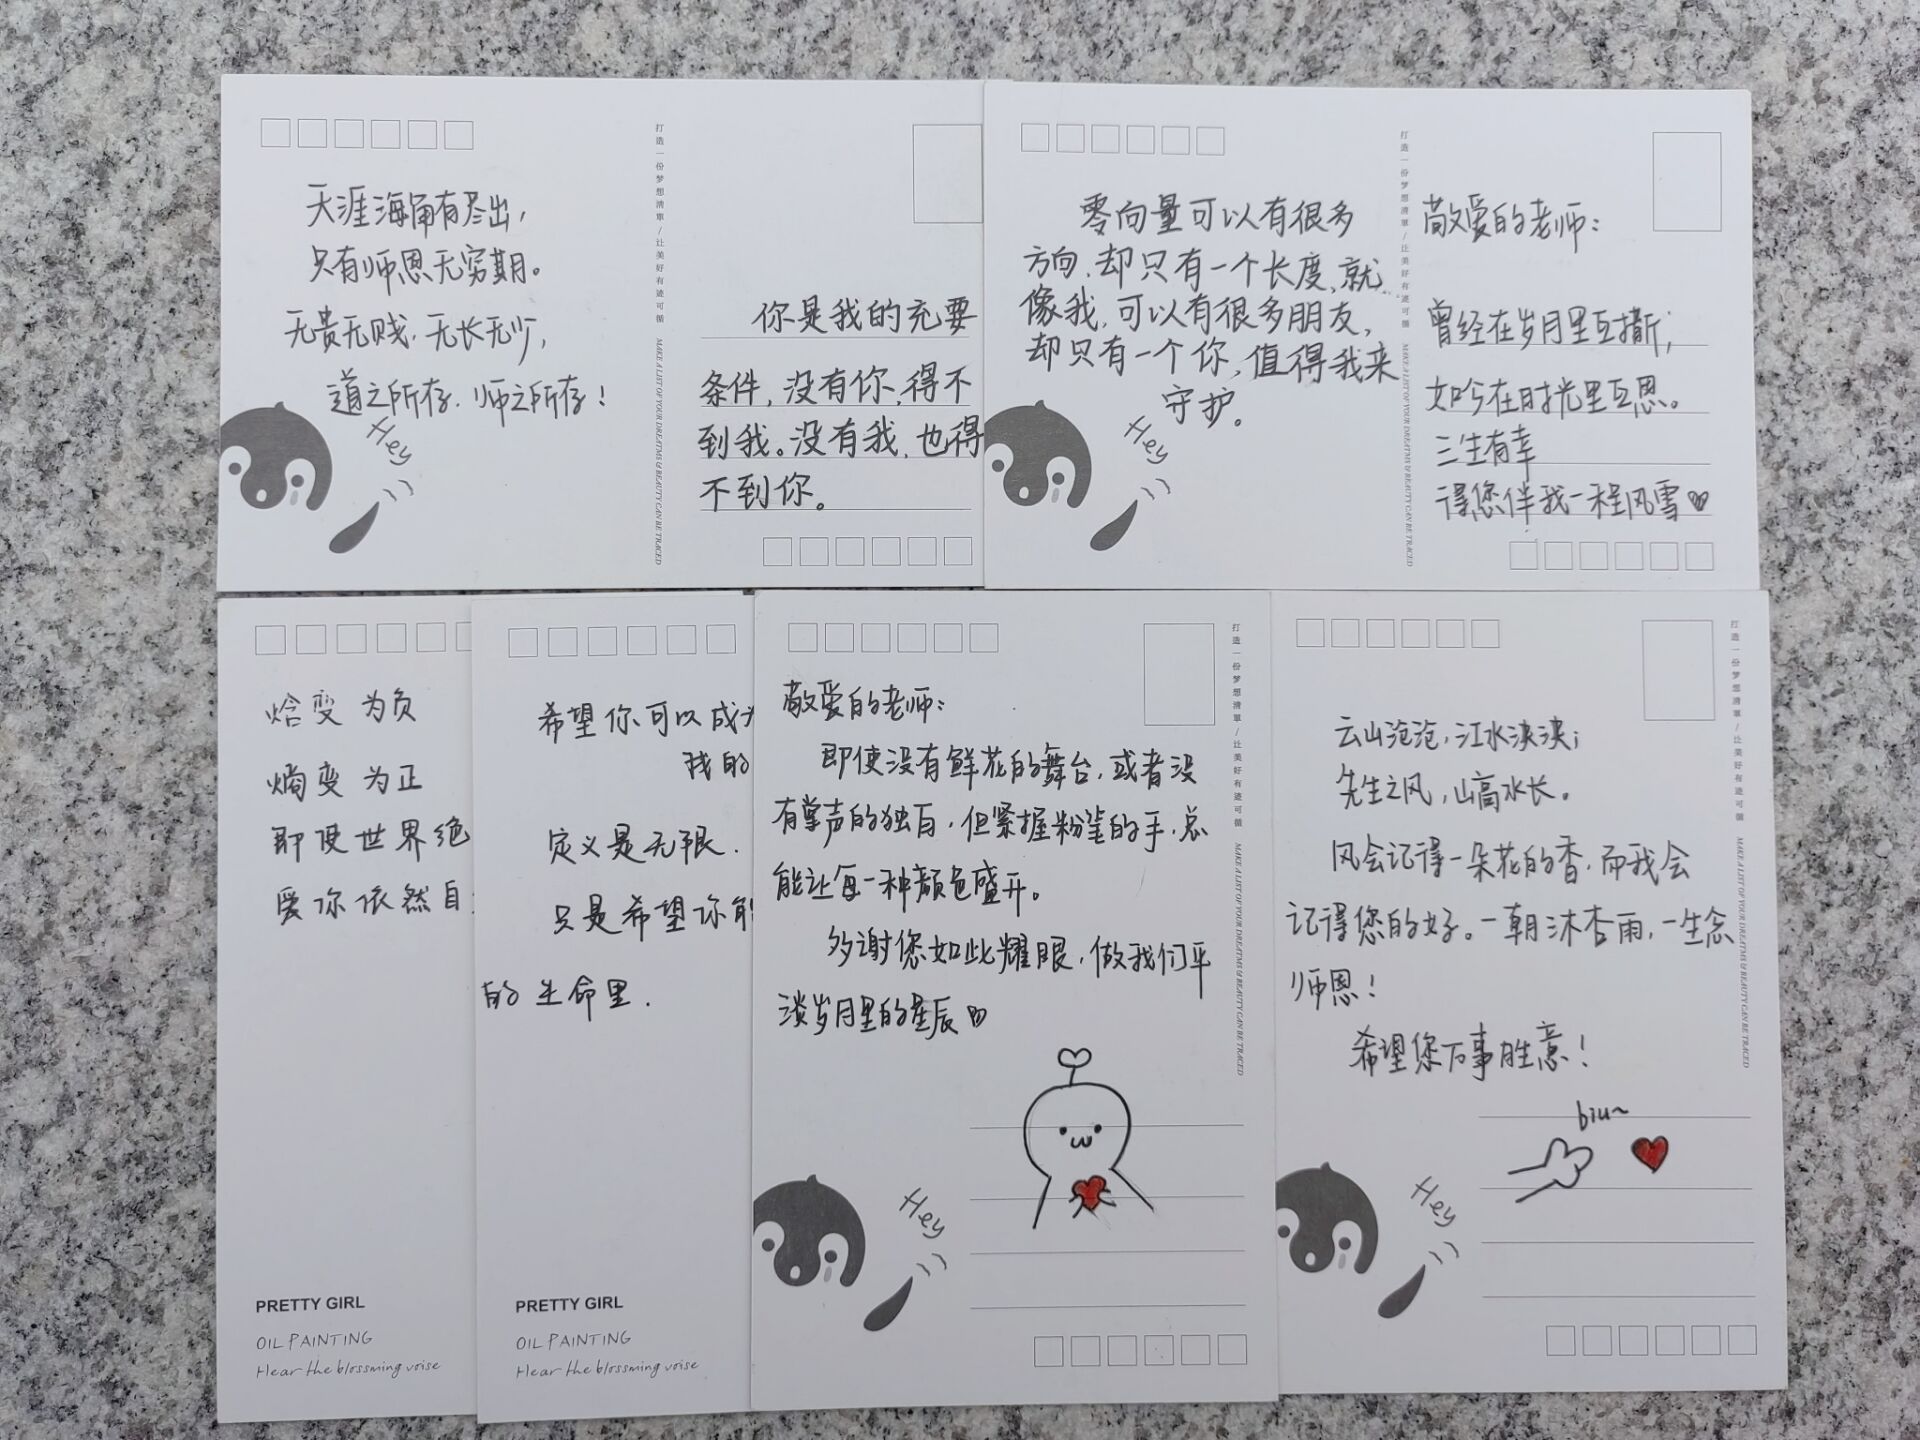 打造一份梦想清單/让美好有迹可循
MAKE A LIST OF YOUR DREATMS & BEAUTY CAN BE TRACED
天涯海角有尽出，
只有师恩无穷期。
无贵无贱，无长无少，
道之所存，师之所存！
Hey
你是我的充要
条件，没有你，得不
到我。没有我，也得
不到你。
打造一份梦想清單/让美好有迹可循
MAKE A LIST OF YOUR DREATMS & BEAUTY CAN BE TRACED
零向量可以有很多
方向，却只有一个长度，就
像我，可以有很多朋友，
却只有一个你，值得我来
守护。
Hey
敬爱的老师：
曾经在岁月里互撕，
如今在时光里互恩。
三生有幸
得您伴我一程风雪
焓变 为负
熵变 为正
即使世界绝
爱你依然自
PRETTY GIRL
OIL PAINTING
Hear the blossming voise
希望你可以成
我的
定义是无限．
只是希望你
的生命里．
PRETTY GIRL
OIL PAINTING
Hear the blossming voise
打造一份梦想清單/让美好有迹可循
MAKE A LIST OF YOUR DREATMS & BEAUTY CAN BE TRACED
敬爱的老师：
即使没有鲜花的舞台，或者没
有掌声的独白，但紧握粉笔的手，总
能让每一种颜色盛开。
多谢您如此耀眼，做我们平
淡岁月里的星辰
Hey
打造一份梦想清單/让美好有迹可循
MAKE A LIST OF YOUR DREATMS & BEAUTY CAN BE TRACED
云山沧沧，江水泱泱；
先生之风，山高水长。
风会记得一朵花的香，而我会
记得您的好。一朝沐杏雨，一生念
师恩！
希望您万事胜意！
biu~
Hey